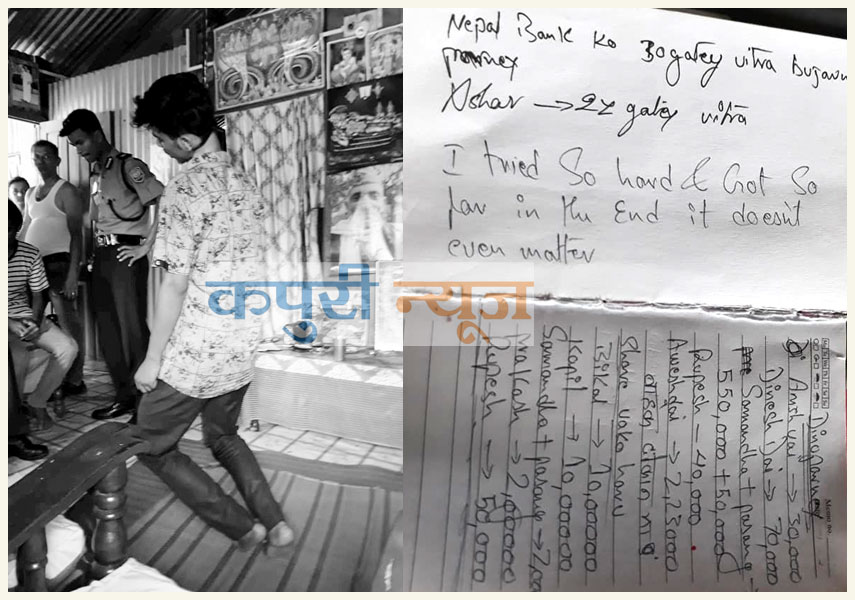 Nepal Bank ko 30 gatey vitra bujaunu
parney
Ashar → 22 gatey vitra
I tried So hard & Got So
far in the End it doesn't
even matter
कपुरी न्यूज
Dinuparney
Amrit kaji → 30,000
Dinesh Dai → 70,000
Samandha + parang →
550,000 + 50,000
Rupesh → 40,000
Awesh dai → 2,25000
Share vako haru
Bikal → 10,00000
Kapil → 10,00000
Samandha + parang → 2,00
Prakash → 2,00000
Rupesh → 50,000